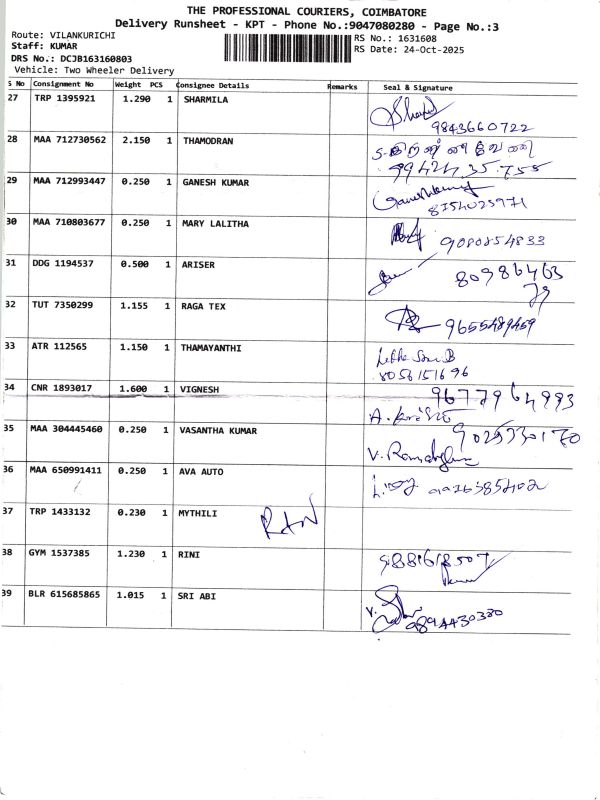 THE PROFESSIONAL COURIERS, COIMBATORE
Delivery Runsheet - KPT - Phone No.:9047080280 - Page No.:3
Route: VILANKURICHI
RS No.: 1631608
Staff: KUMAR
RS Date: 24-Oct-2025
DRS No.: DCJB163160803
Vehicle: Two Wheeler Delivery
S No Consignment No Weight PCS Consignee Details Remarks Seal & Signature
27 TRP 1395921 1.290 1 SHARMILA
9843660722
28 MAA 712730562 2.150 1 THAMODRAN
99424 35755
29 MAA 712993447 0.250 1 GANESH KUMAR
8154025971
30 MAA 710803677 0.250 1 MARY LALITHA 9080854833
31 DDG 1194537 0.500 1 ARISER 80986463
79
32 TUT 7350299 1.155 1 RAGA TEX 9655489459
33 ATR 112565 1.150 1 THAMAYANTHI
8056151696
34 CNR 1893017 1.600 1 VIGNESH 9677964993
35 MAA 304445460 0.250 1 VASANTHA KUMAR
36 MAA 650991411 0.250 1 AVA AUTO
37 TRP 1433132 0.230 1 MYTHILI
38 GYM 1537385 1.230 1 RINI 9881618507
39 BLR 615685865 1.015 1 SRI ABI
9894430380